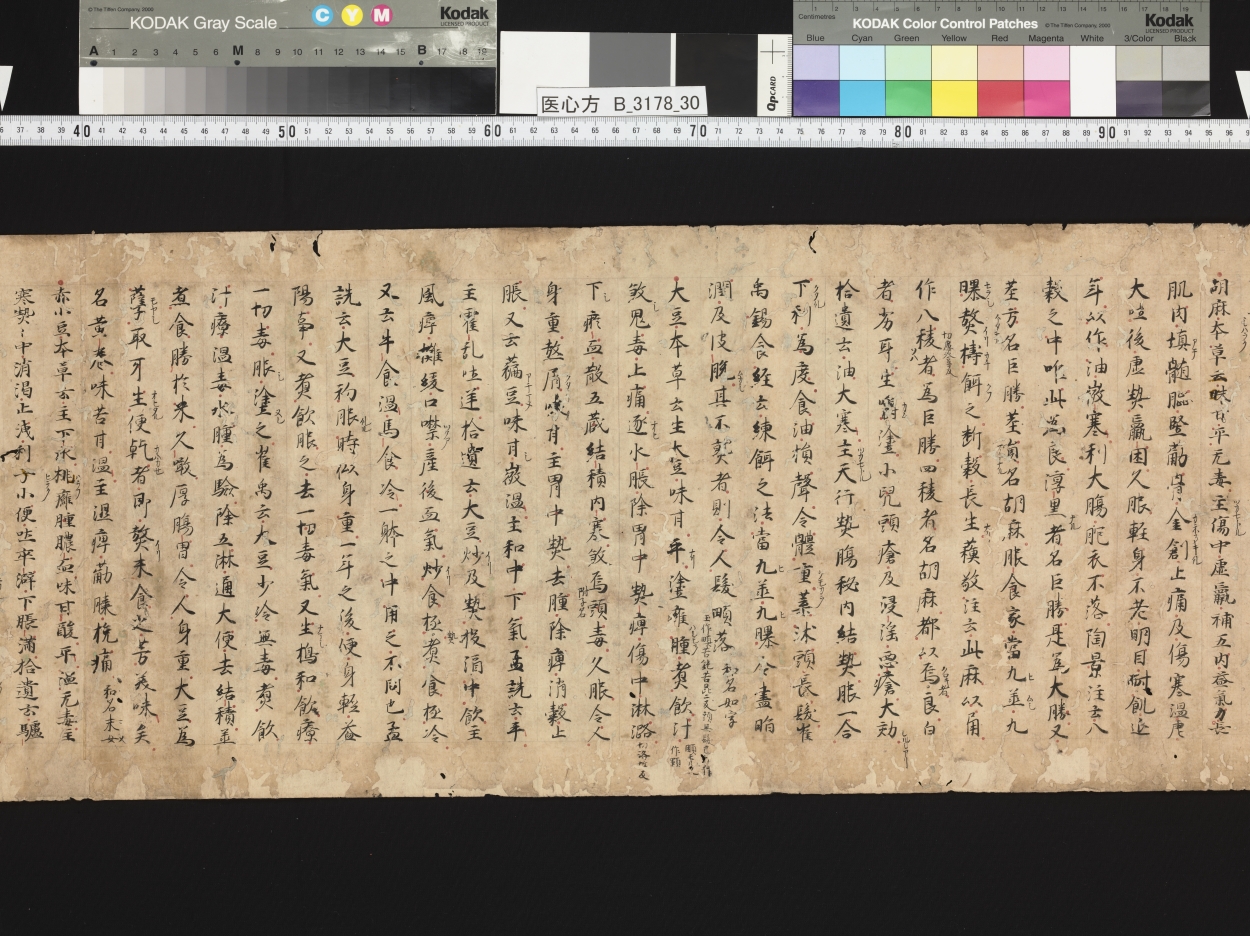 © The Tiffen Company, 2000
KODAK Gray Scale
C Y M
Kodak
LICENSED PRODUCT
A 1 2 3 4 5 6 M 8 9 10 11 12 13 14 15 B 17 18 19
医心方 B_3178_30
QPCARD
Centimetres
KODAK Color Control Patches
© The Tiffen Company, 2000
Kodak
LICENSED PRODUCT
Blue Cyan Green Yellow Red Magenta White 3/Color Black
胡麻本草云味甘平无毒主傷中虚羸補五内益氣力長
肌肉填髄脳堅筋骨金創止痛及傷寒温瘧
大吐後虚熱羸困久服軽身不老明目耐飢延
年以作油微寒利大腸胞衣不落陶景注云八
穀之中唯此為良淳黒者名巨勝是為大勝又
茎方名巨勝茎員名胡麻服食家當九蒸九
曝熬擣餌之断穀長生蘓敬注云此麻以角
作八稜者為巨勝四稜者名胡麻都以烏良白
者劣耳生嚼塗小児頭瘡及浸淫悪瘡大効
拾遺云油大寒主天行熱腸秘内結熱服一合
下利為度食油損聲令體重葉沐頭長髪崔
禹錫食経云練餌之法當九蒸九曝令盡脂
潤及皮脱其不熟者則令人髪頓落 和名如字
大豆本草云生大豆味甘平塗癰腫煮飲汁
殺鬼毒止痛逐水脹除胃中熱痺傷中淋露
下瘀血散五蔵結積内寒殺烏頭毒久服令人
身重熬屑味甘主胃中熱去腫除痺消穀止
脹又云蘓豆味甘微温主和中下氣孟詵云平
主霍乱吐逆拾遺云大豆炒及熱投酒中飲主
風痺灘緩口噤産後血氣炒食極煮食極冷
又云牛食温馬食冷一躰之中用之不同也孟
詵云大豆初服時似身重一年之後便身軽益
陽事又煮飲服之去一切毒氣又生擣和飲療
一切毒脹塗之崔禹云大豆少冷無毒煮飲
汁療温毒水腫為験除五淋通大便去結積蒸
煮食勝於米久噉厚腸胃令人身重大豆為
蘗取牙生便乾者即熬末食芝芳美味矣
名黄巻味苦甘温主湿痺筋膝挽痛
赤小豆本草云主下水排癰腫膿血味甘酸平温无毒主
寒熱〻中消渇止洩利子小便吐卒澼下脹満拾遺云驢